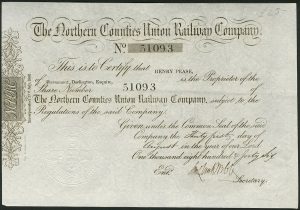 The Northern Counties Union Railway Company.
No 51093
This is to Certify that HENRY PEASE,
of Darlington, Esquire, is the Proprietor of the
Share Number 51093 of
The Northern Counties Union Railway Company, subject to the
Regulations of the said Company.
Given under the Common Seal of the said
Company the thirty first day of
August in the year of our Lord
One thousand eight hundred & forty six
Secretary.